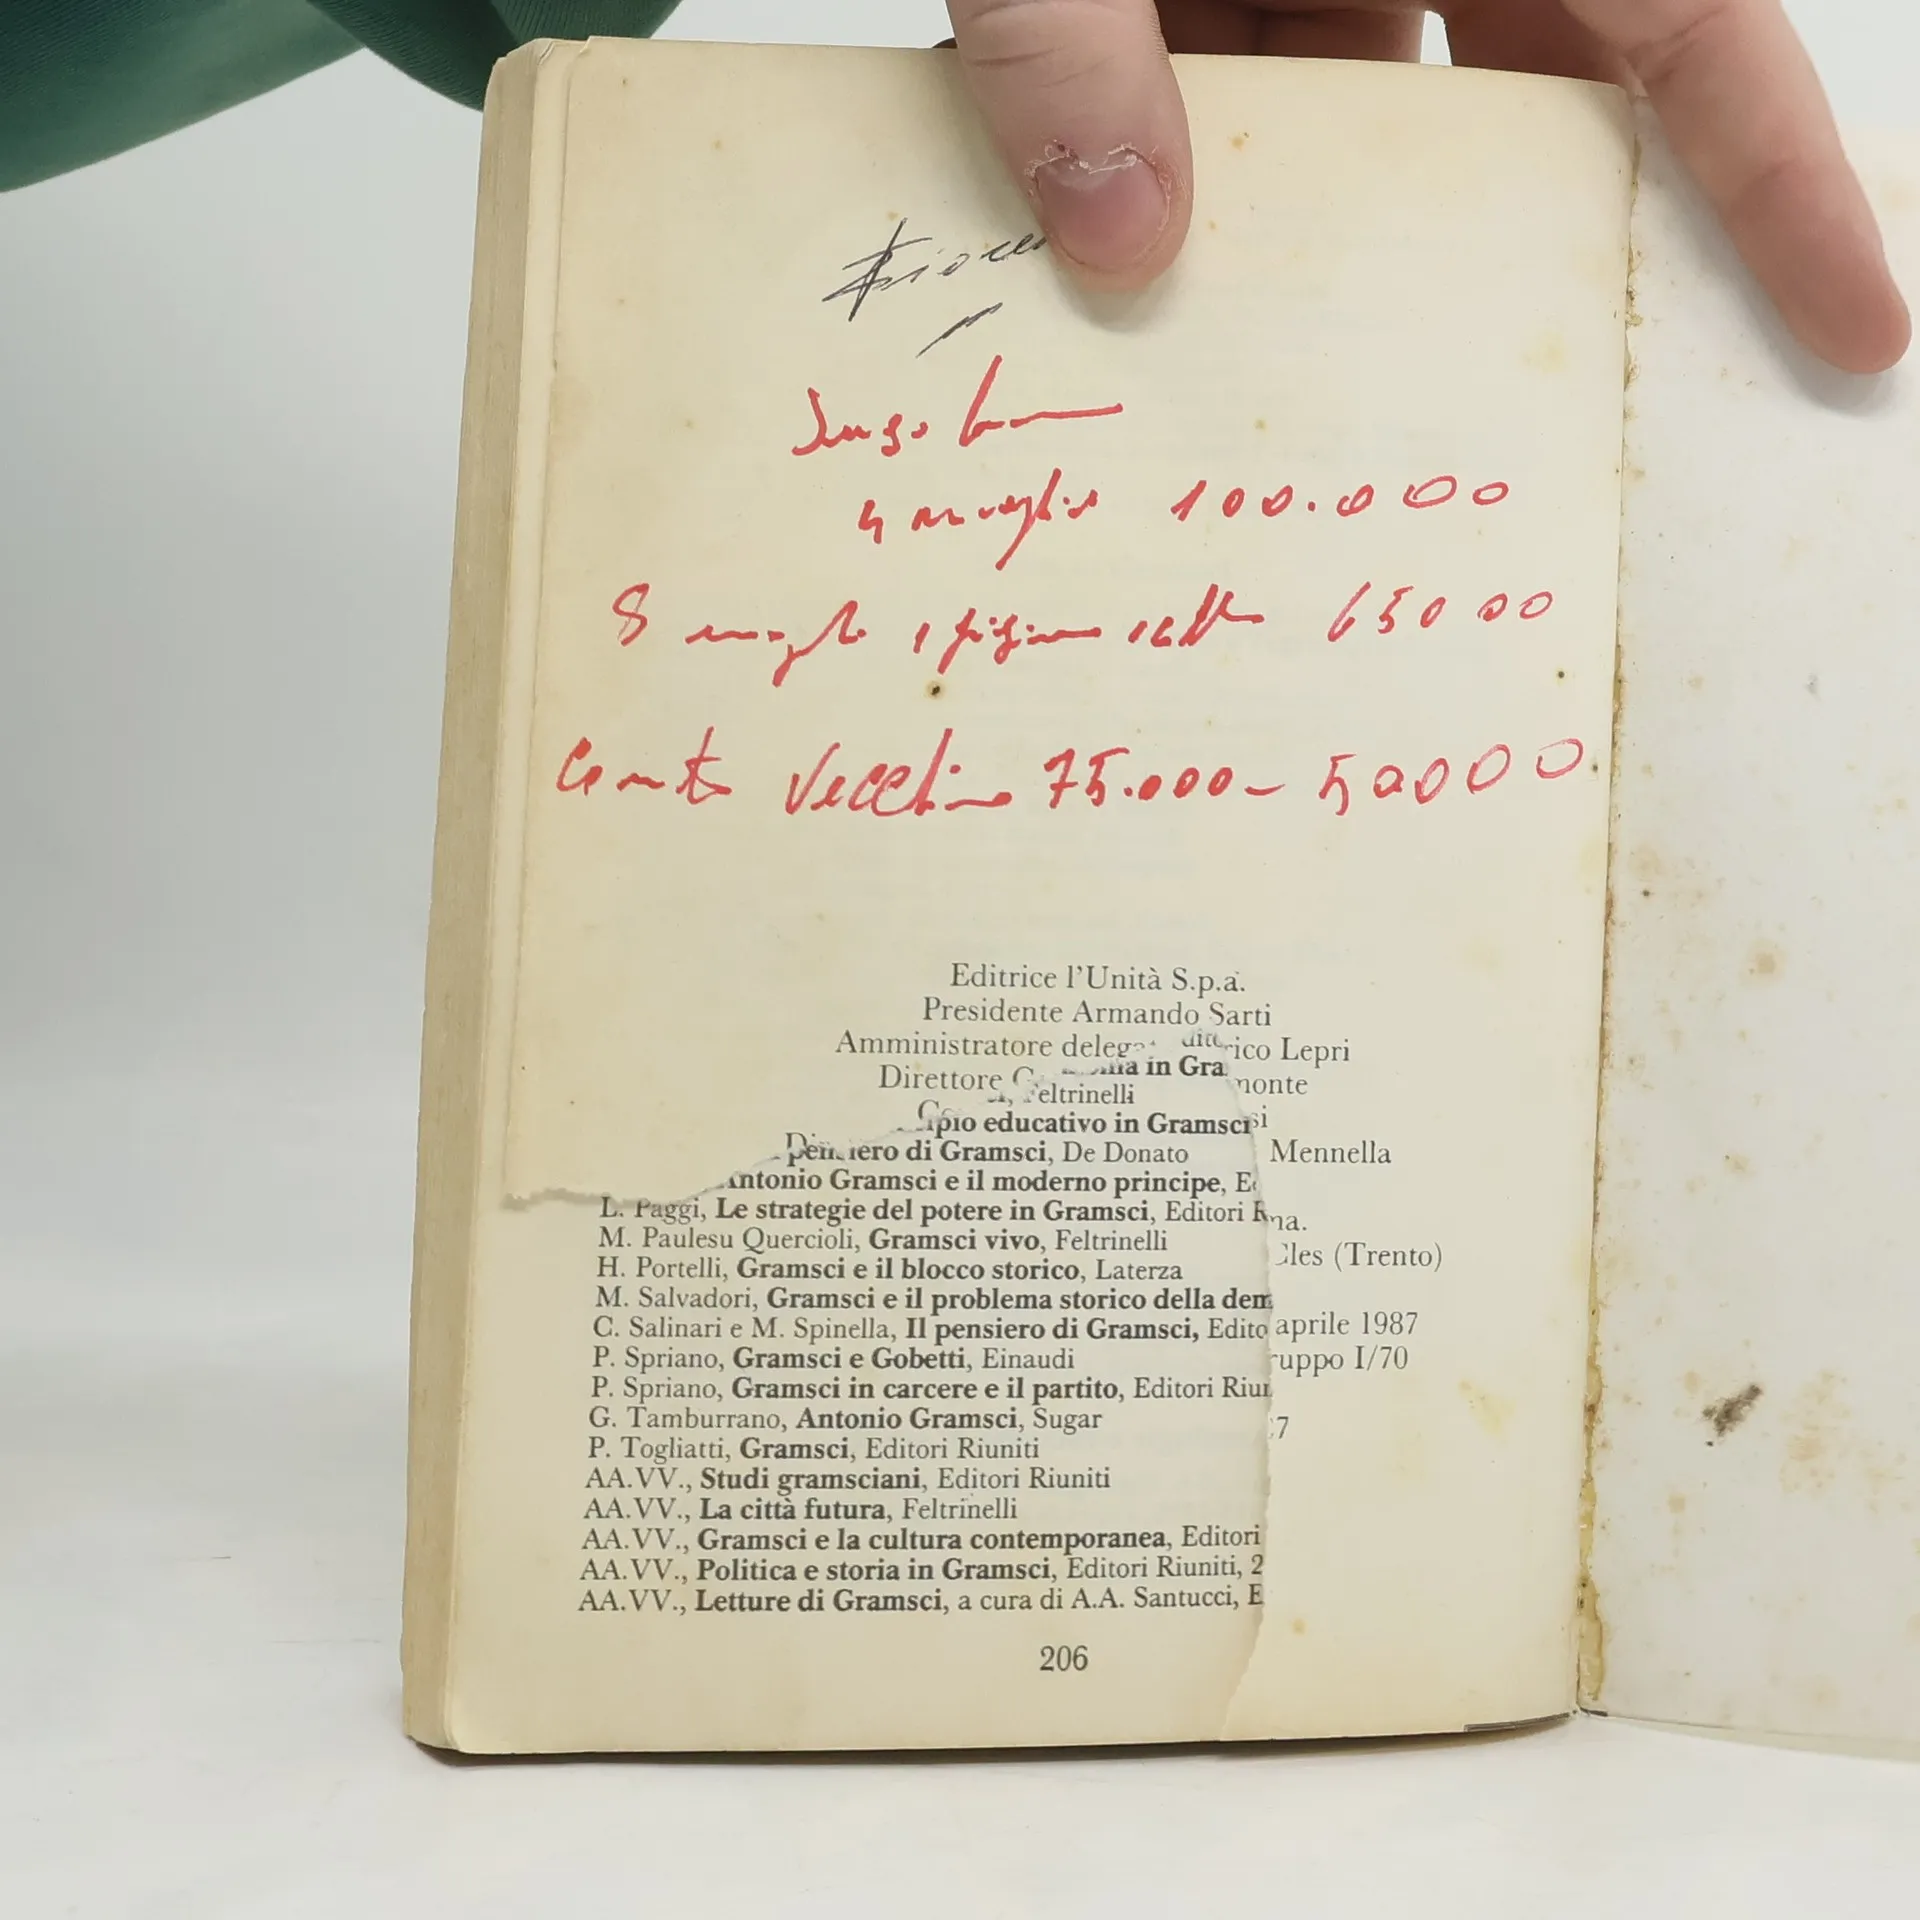 100.000
8 65000
Conto Vecchio 75.000 - 50000
Editrice l'Unità S.p.a.
Presidente Armando Sarti
Amministratore delega rico Lepri
Direttore monte
Mennella
Cles (Trento)
aprile 1987
ruppo I/70
in Gra
Feltrinelli
ipio educativo in Gramsci
pensiero di Gramsci, De Donato
Antonio Gramsci e il moderno principe, E
L. Paggi, Le strategie del potere in Gramsci, Editori R
M. Paulesu Quercioli, Gramsci vivo, Feltrinelli
H. Portelli, Gramsci e il blocco storico, Laterza
M. Salvadori, Gramsci e il problema storico della dem
C. Salinari e M. Spinella, Il pensiero di Gramsci, Edito
P. Spriano, Gramsci e Gobetti, Einaudi
P. Spriano, Gramsci in carcere e il partito, Editori Riun
G. Tamburrano, Antonio Gramsci, Sugar
P. Togliatti, Gramsci, Editori Riuniti
AA.VV., Studi gramsciani, Editori Riuniti
AA.VV., La città futura, Feltrinelli
AA.VV., Gramsci e la cultura contemporanea, Editori
AA.VV., Politica e storia in Gramsci, Editori Riuniti, 2
AA.VV., Letture di Gramsci, a cura di A.A. Santucci, E
206